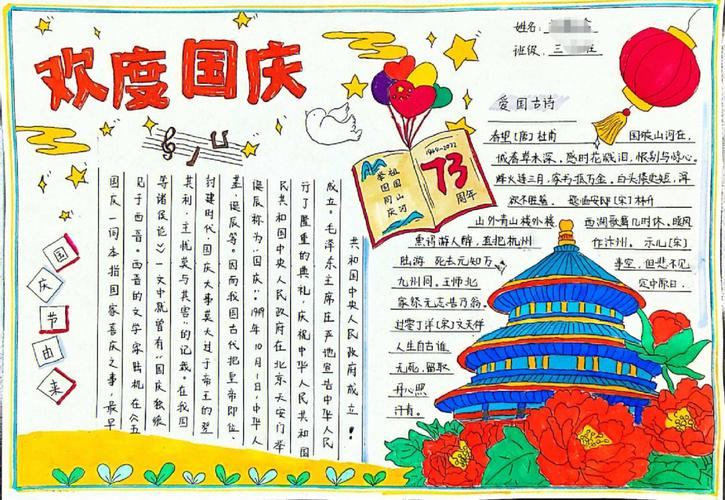 欢度国庆
姓名:
班级: 三 班
国庆节由来
国庆一词本指国家喜庆之事,最早
见于西晋。西晋的文学家陆机在《五
等诸侯论》一文中就曾有“国庆独飨
其利,主忧莫与其害”的记载。在我国
封建时代,国庆大事莫大过于帝王的登
基、诞辰等。因而我国古代把皇帝即位、
诞辰称为“国庆”。1949年10月1日,中华人
民共和国中央人民政府在北京天安门举
行了隆重的典礼,庆祝中华人民共和国
成立。毛泽东主席庄严地宣告中华人民
共和国中央人民政府成立!
举国同庆
1949-2022
73
周年
爱国古诗
春望[唐]杜甫 国破山河在,
城春草木深。感时花溅泪,恨别鸟惊心。
烽火连三月,家书抵万金。白头搔更短,浑
欲不胜簪。 题临安邸[宋]林升
山外青山楼外楼 西湖歌舞几时休,暖风
熏得游人醉,直把杭州 作汴州。示儿[宋]
陆游 死去元知万 事空,但悲不见
九州同。王师北 定中原日,
家祭无忘告乃翁。
过零丁洋[宋]文天祥
人生自古谁
无死,留取
丹心照
汗青。